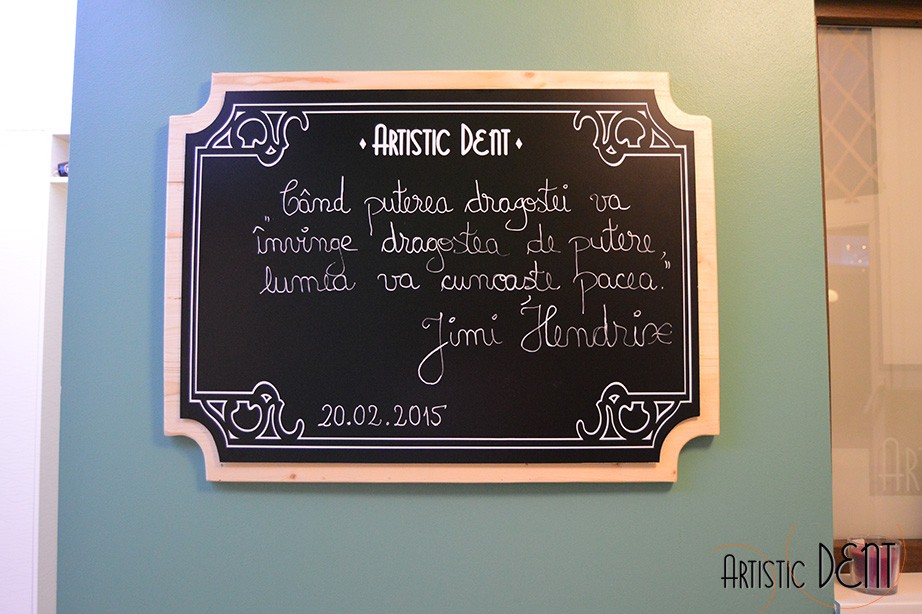 ARTISTIC DENT
„Când puterea dragostei va
învinge dragostea de putere,
lumea va cunoaște pacea.”
Jimi Hendrix
20.02.2015
AR
ARTISTIC DENT